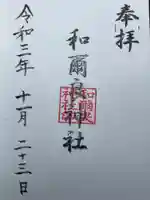 奉拝
和爾良神社
令和二年 十一月 二十三日